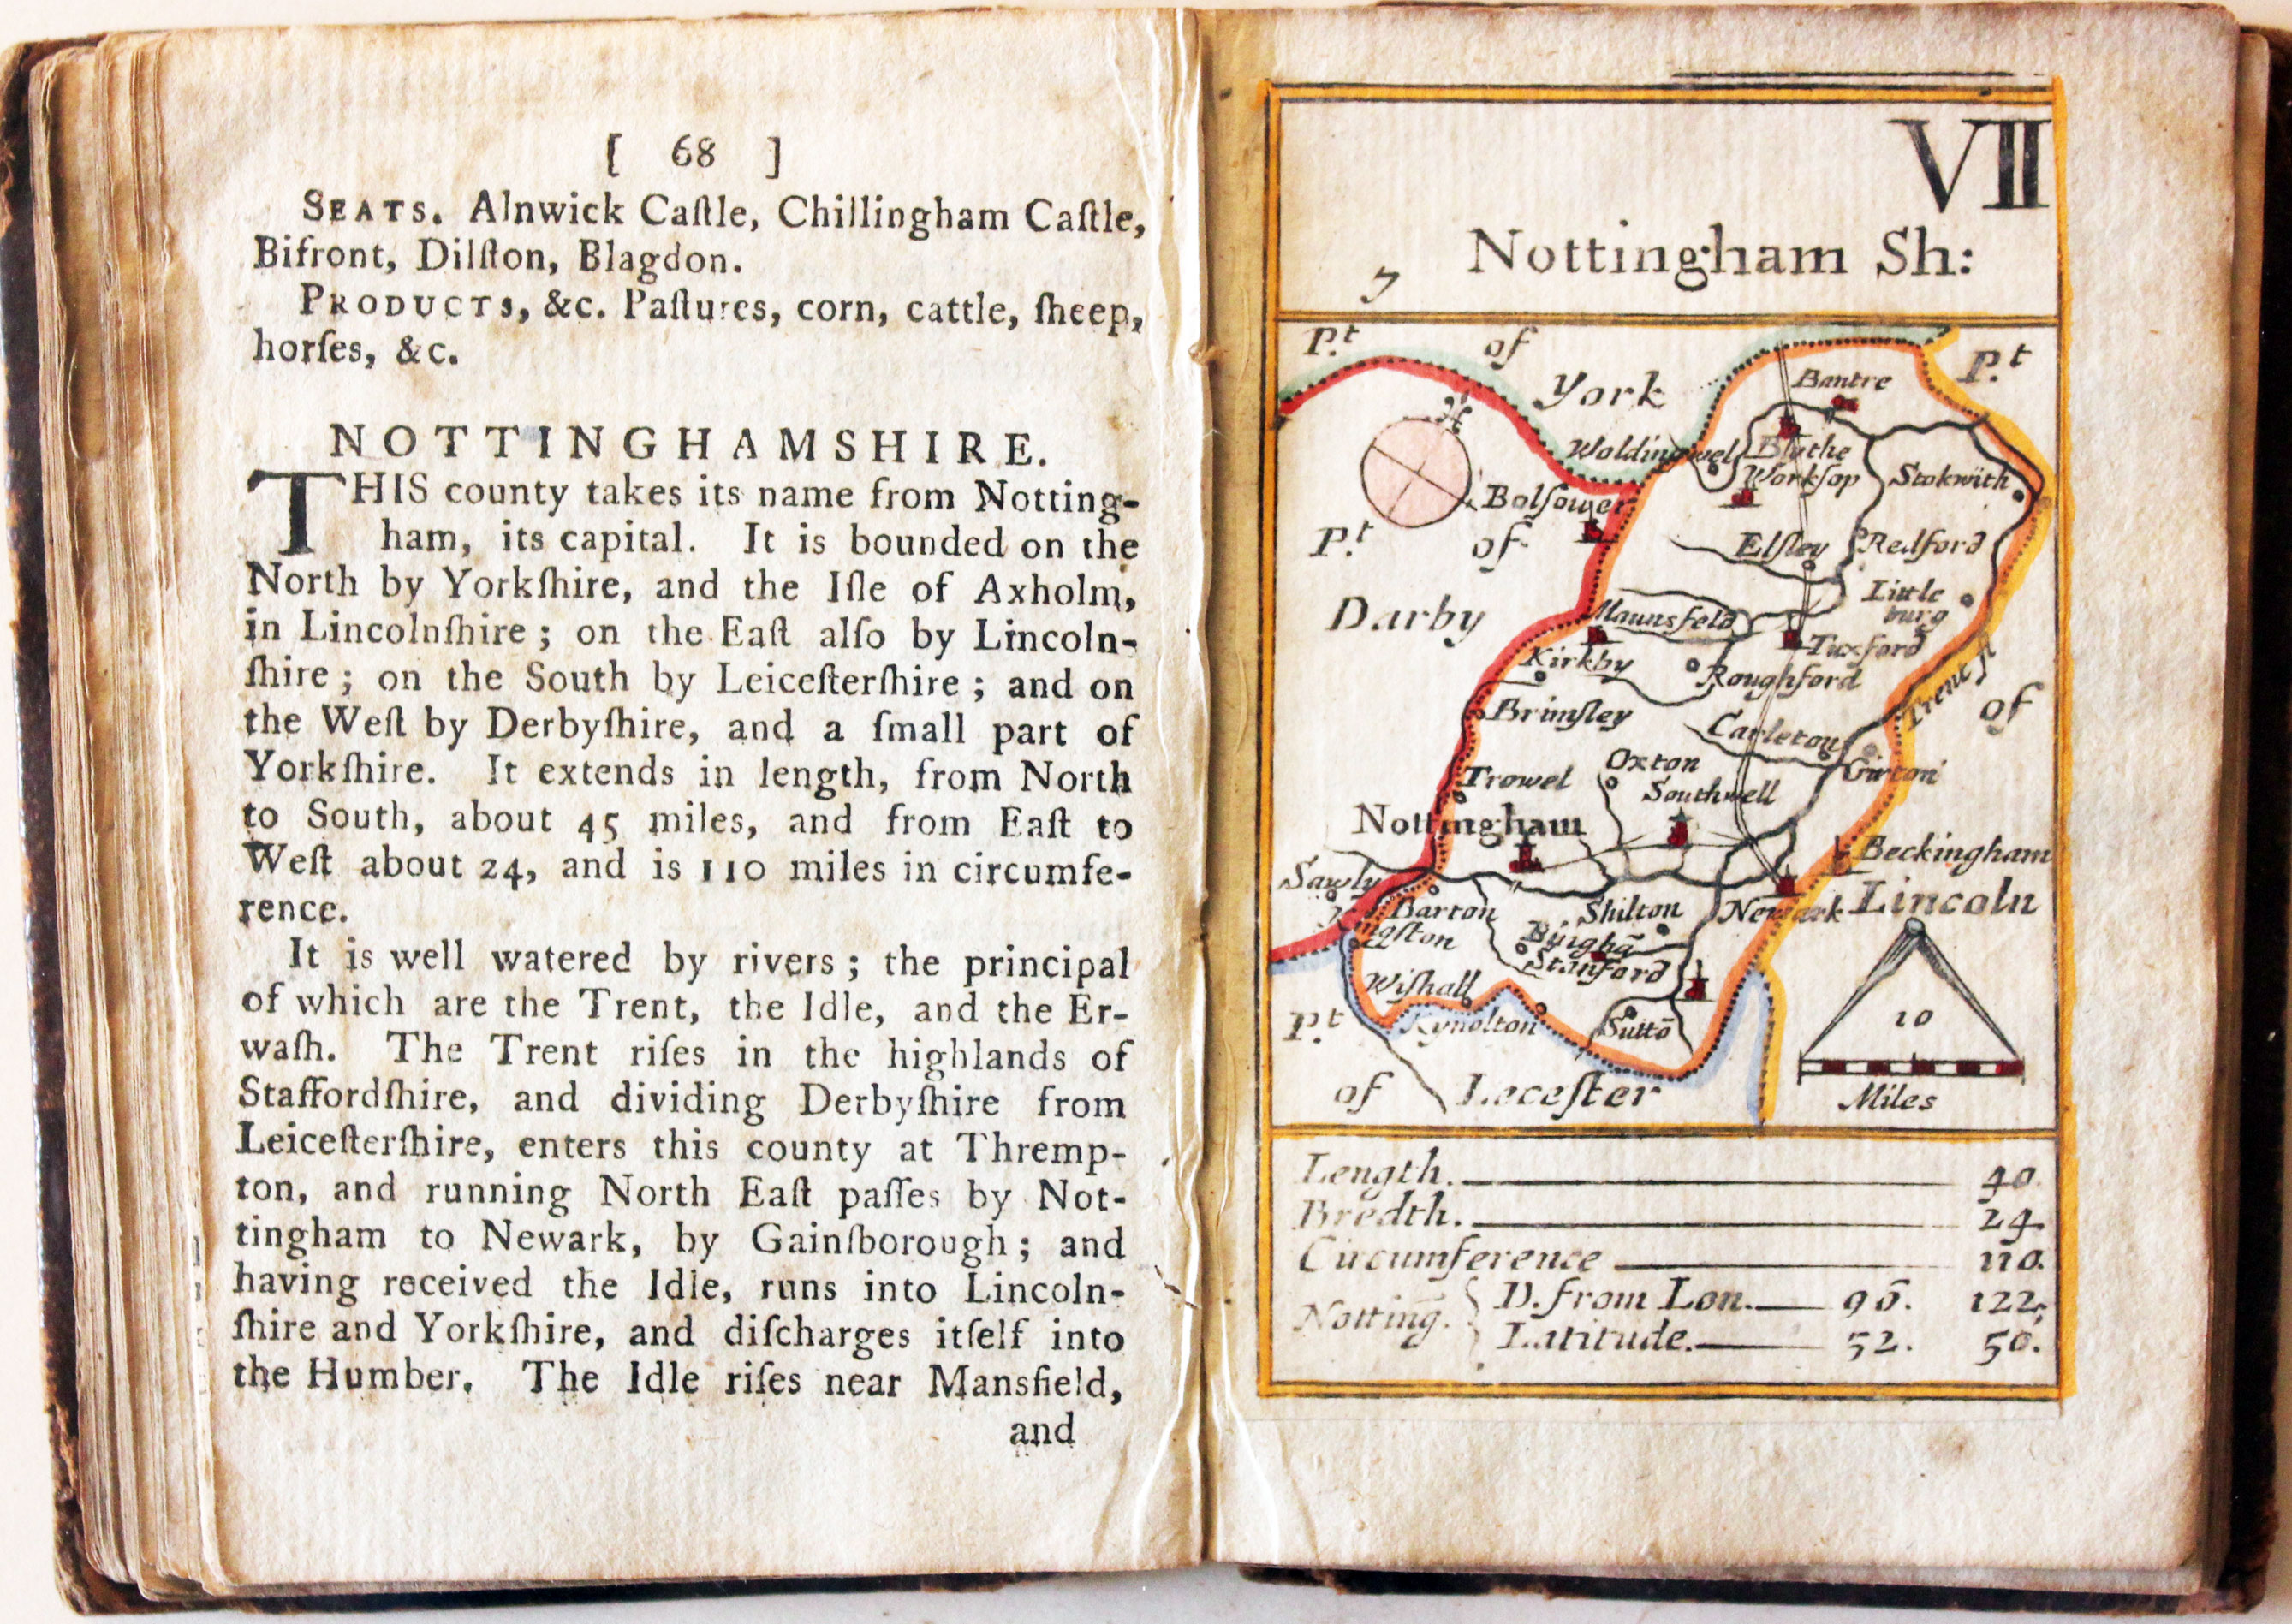 [ 68 ]
SEATS. Alnwick Caſtle, Chillingham Caſtle,
Bifront, Dilſton, Blagdon.
PRODUCTS, &c. Paſtures, corn, cattle, ſheep,
horſes, &c.
NOTTINGHAMSHIRE.
THIS county takes its name from Notting-
ham, its capital. It is bounded on the
North by Yorkſhire, and the Iſle of Axholm,
in Lincolnſhire; on the Eaſt alſo by Lincoln-
ſhire; on the South by Leiceſterſhire; and on
the Weſt by Derbyſhire, and a ſmall part of
Yorkſhire. It extends in length, from North
to South, about 45 miles, and from Eaſt to
Weſt about 24, and is 110 miles in circumfe-
rence.
It is well watered by rivers; the principal
of which are the Trent, the Idle, and the Er-
waſh. The Trent riſes in the highlands of
Staffordſhire, and dividing Derbyſhire from
Leiceſterſhire, enters this county at Thremp-
ton, and running North Eaſt paſſes by Not-
tingham to Newark, by Gainſborough; and
having received the Idle, runs into Lincoln-
ſhire and Yorkſhire, and diſcharges itſelf into
the Humber. The Idle riſes near Mansfield,
and
VII
Nottingham Sh:
7
P.t of York
P.t
Bantre
Blythe
Woldingwel
Workſop
Stokwith
Bolſower
P.t of
Darby
Elſley
Redford
Little
burg
Maunsfeld
Tuxford
Kirkby
Roughford
Trent fl
of
Brimſley
Carleton
Oxton
Girton
Trowel
Southwell
Nottingham
Beckingham
Sawly
Lincoln
Barton
Shilton
Newark
Kingſton
Bingha̅
Stanford
Wiſhall
P.t
Kynolton
Sutto̅
10
of Leceſter
Miles
Length. 40.
Bredth. 24.
Circumference 110.
Notting. { D. from Lon. 122.
Latitude. 52. 50.